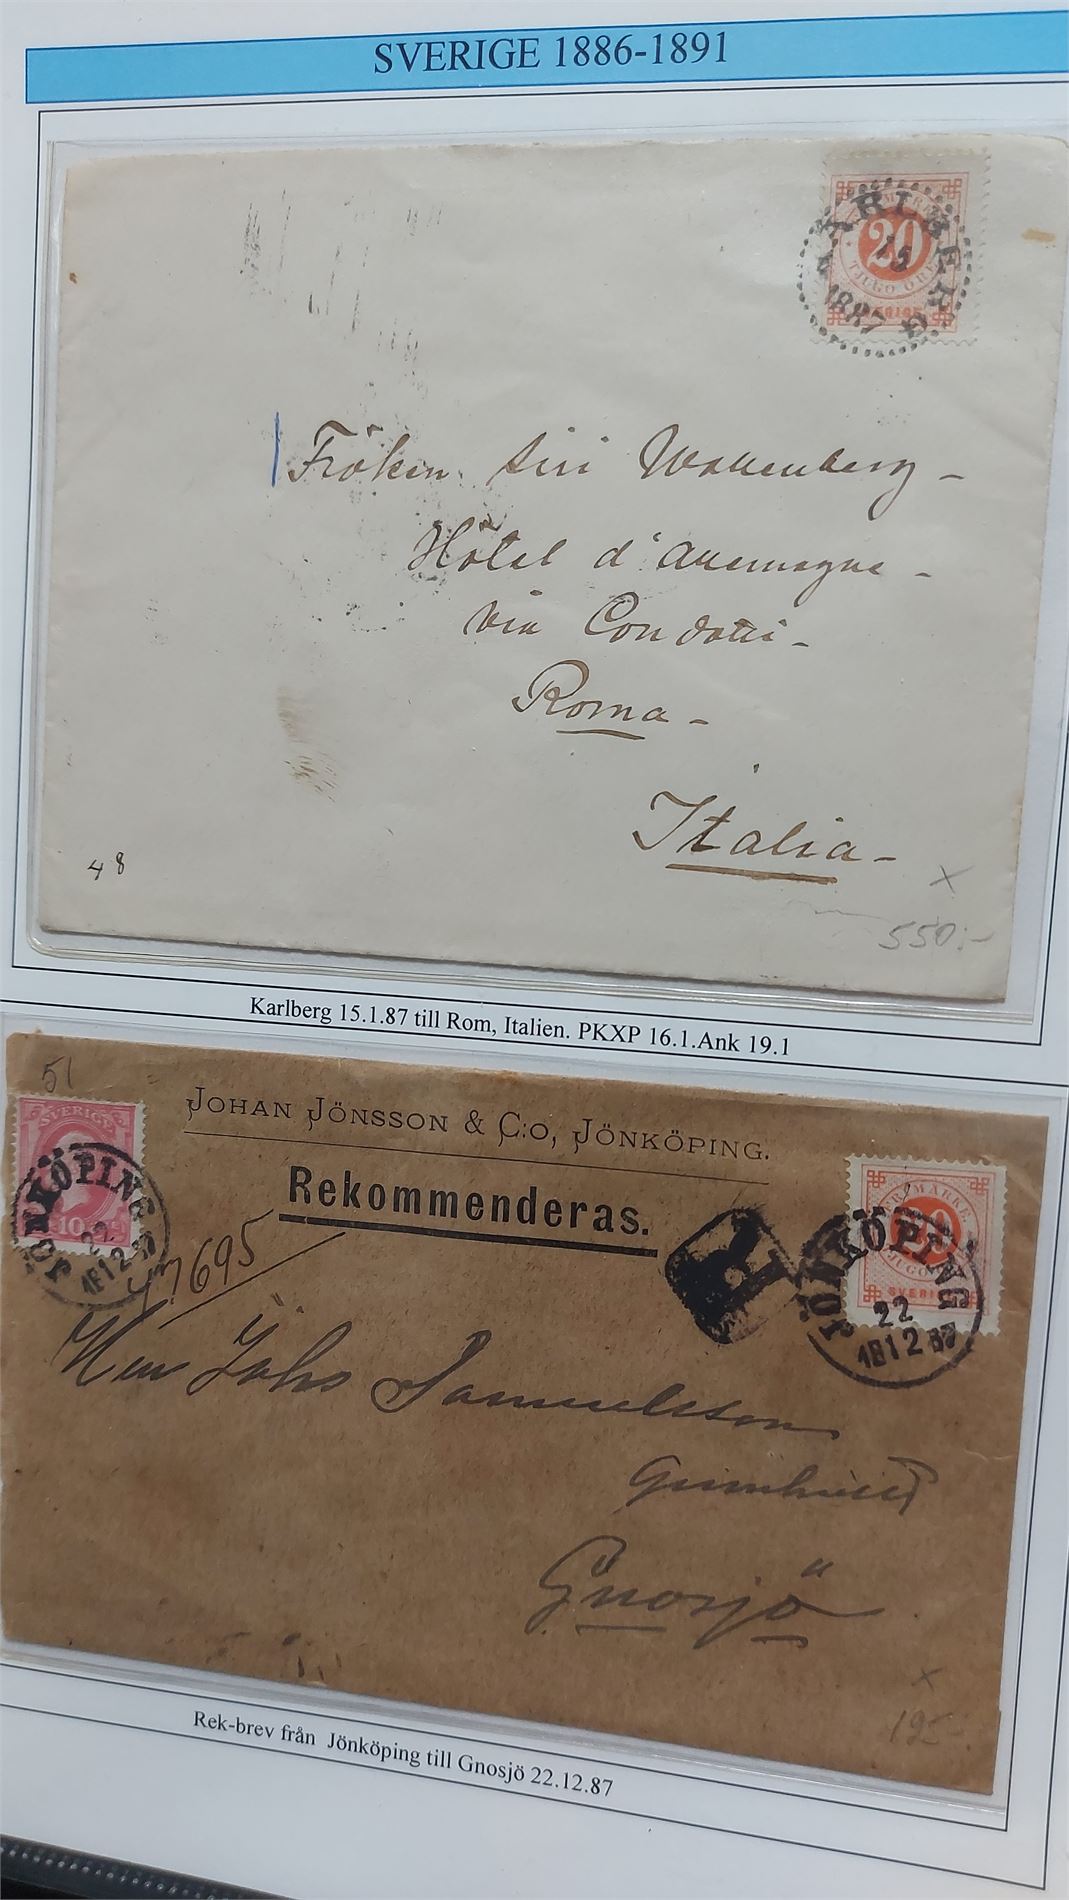 SVERIGE 1886-1891
KARLBERG
15
1
1887
20
TJUGO ÖRE
Fröken Siri Wallenberg -
Hôtel d'Allemagne -
Via Condotti -
Roma -
Italia -
48
x
550:-
Karlberg 15.1.87 till Rom, Italien. PKXP 16.1.Ank 19.1
51
JOHAN JÖNSSON & C:O, JÖNKÖPING.
Rekommenderas.
SVERIGE
10
JÖNKÖPING
22
1812 87
7695
R
FRIMÄRKE
20
SVERIGE
JÖNKÖPING
22
1812 87
Herr Johs Samuelsson
Gnosjö
x
195:-
Rek-brev från Jönköping till Gnosjö 22.12.87